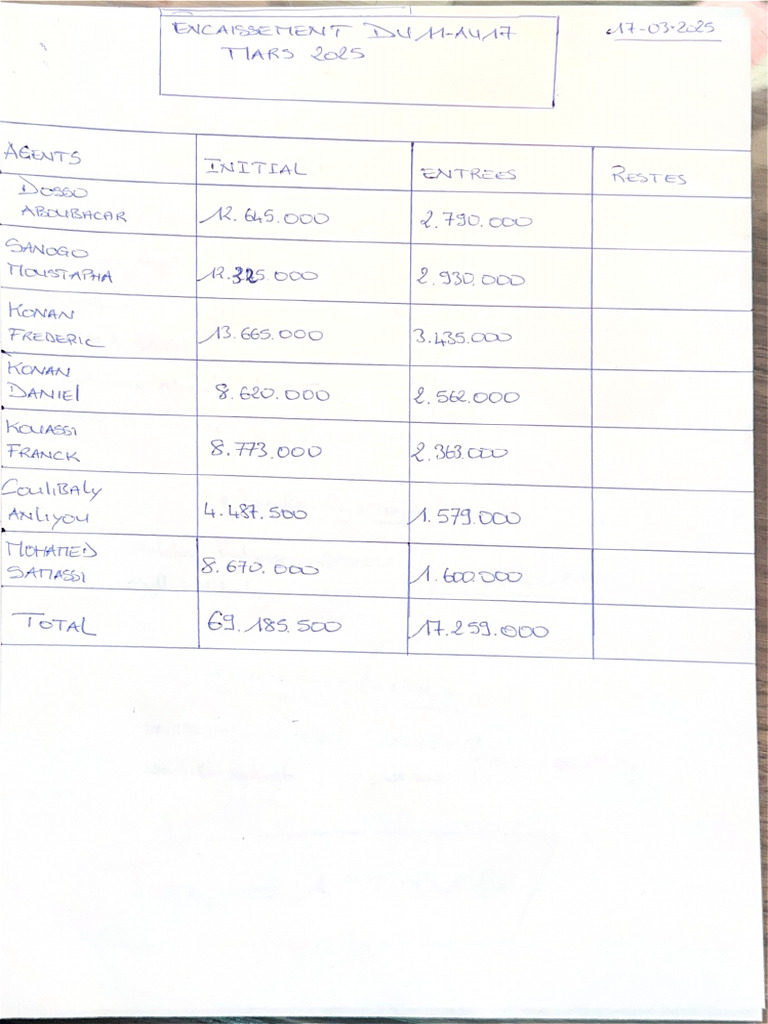 ENCAISSEMENT DU 11-AU 17
MARS 2025
17-03-2025
AGENTS INITIAL ENTREES RESTES
DOSSO
ABOUBACAR 12.645.000 2.790.000
SANOGO
MOUSTAPHA 12.325.000 2.930.000
KONAN
FREDERIC 13.665.000 3.435.000
KONAN
DANIEL 8.620.000 2.562.000
KOUASSI
FRANCK 8.773.000 2.363.000
COULIBALY
ANLIYOU 4.487.500 1.579.000
MOHAMED
SAMASSI 8.670.000 1.600.000
TOTAL 69.185.500 17.259.000